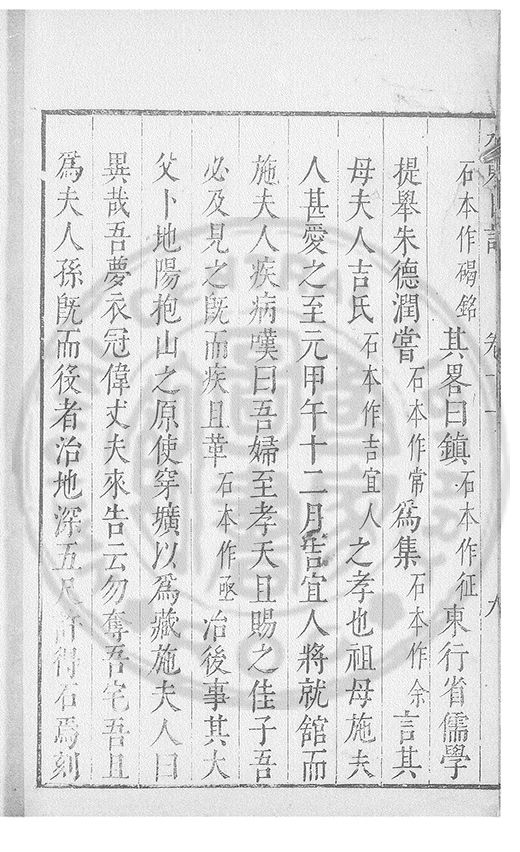 石本作碣銘其畧曰鎮石本作征東行省儒學
提舉朱德潤嘗石本作常爲集石本作余言其
母夫人吉氏石本作吉宜人之孝也祖母施夫
人甚愛之至元甲午十二月吉宜人將就舘而
施夫人疾病嘆曰吾婦至孝天且賜之佳子吾
必及見之旣而疾且革石本作亟治後事其大
父卜地陽抱山之原使穿壙以爲藏施夫人曰
異哉吾夢衣冠偉丈夫來告云勿奪吾宅吾且
爲夫人孫旣而役者治地深五尺許得石爲刻